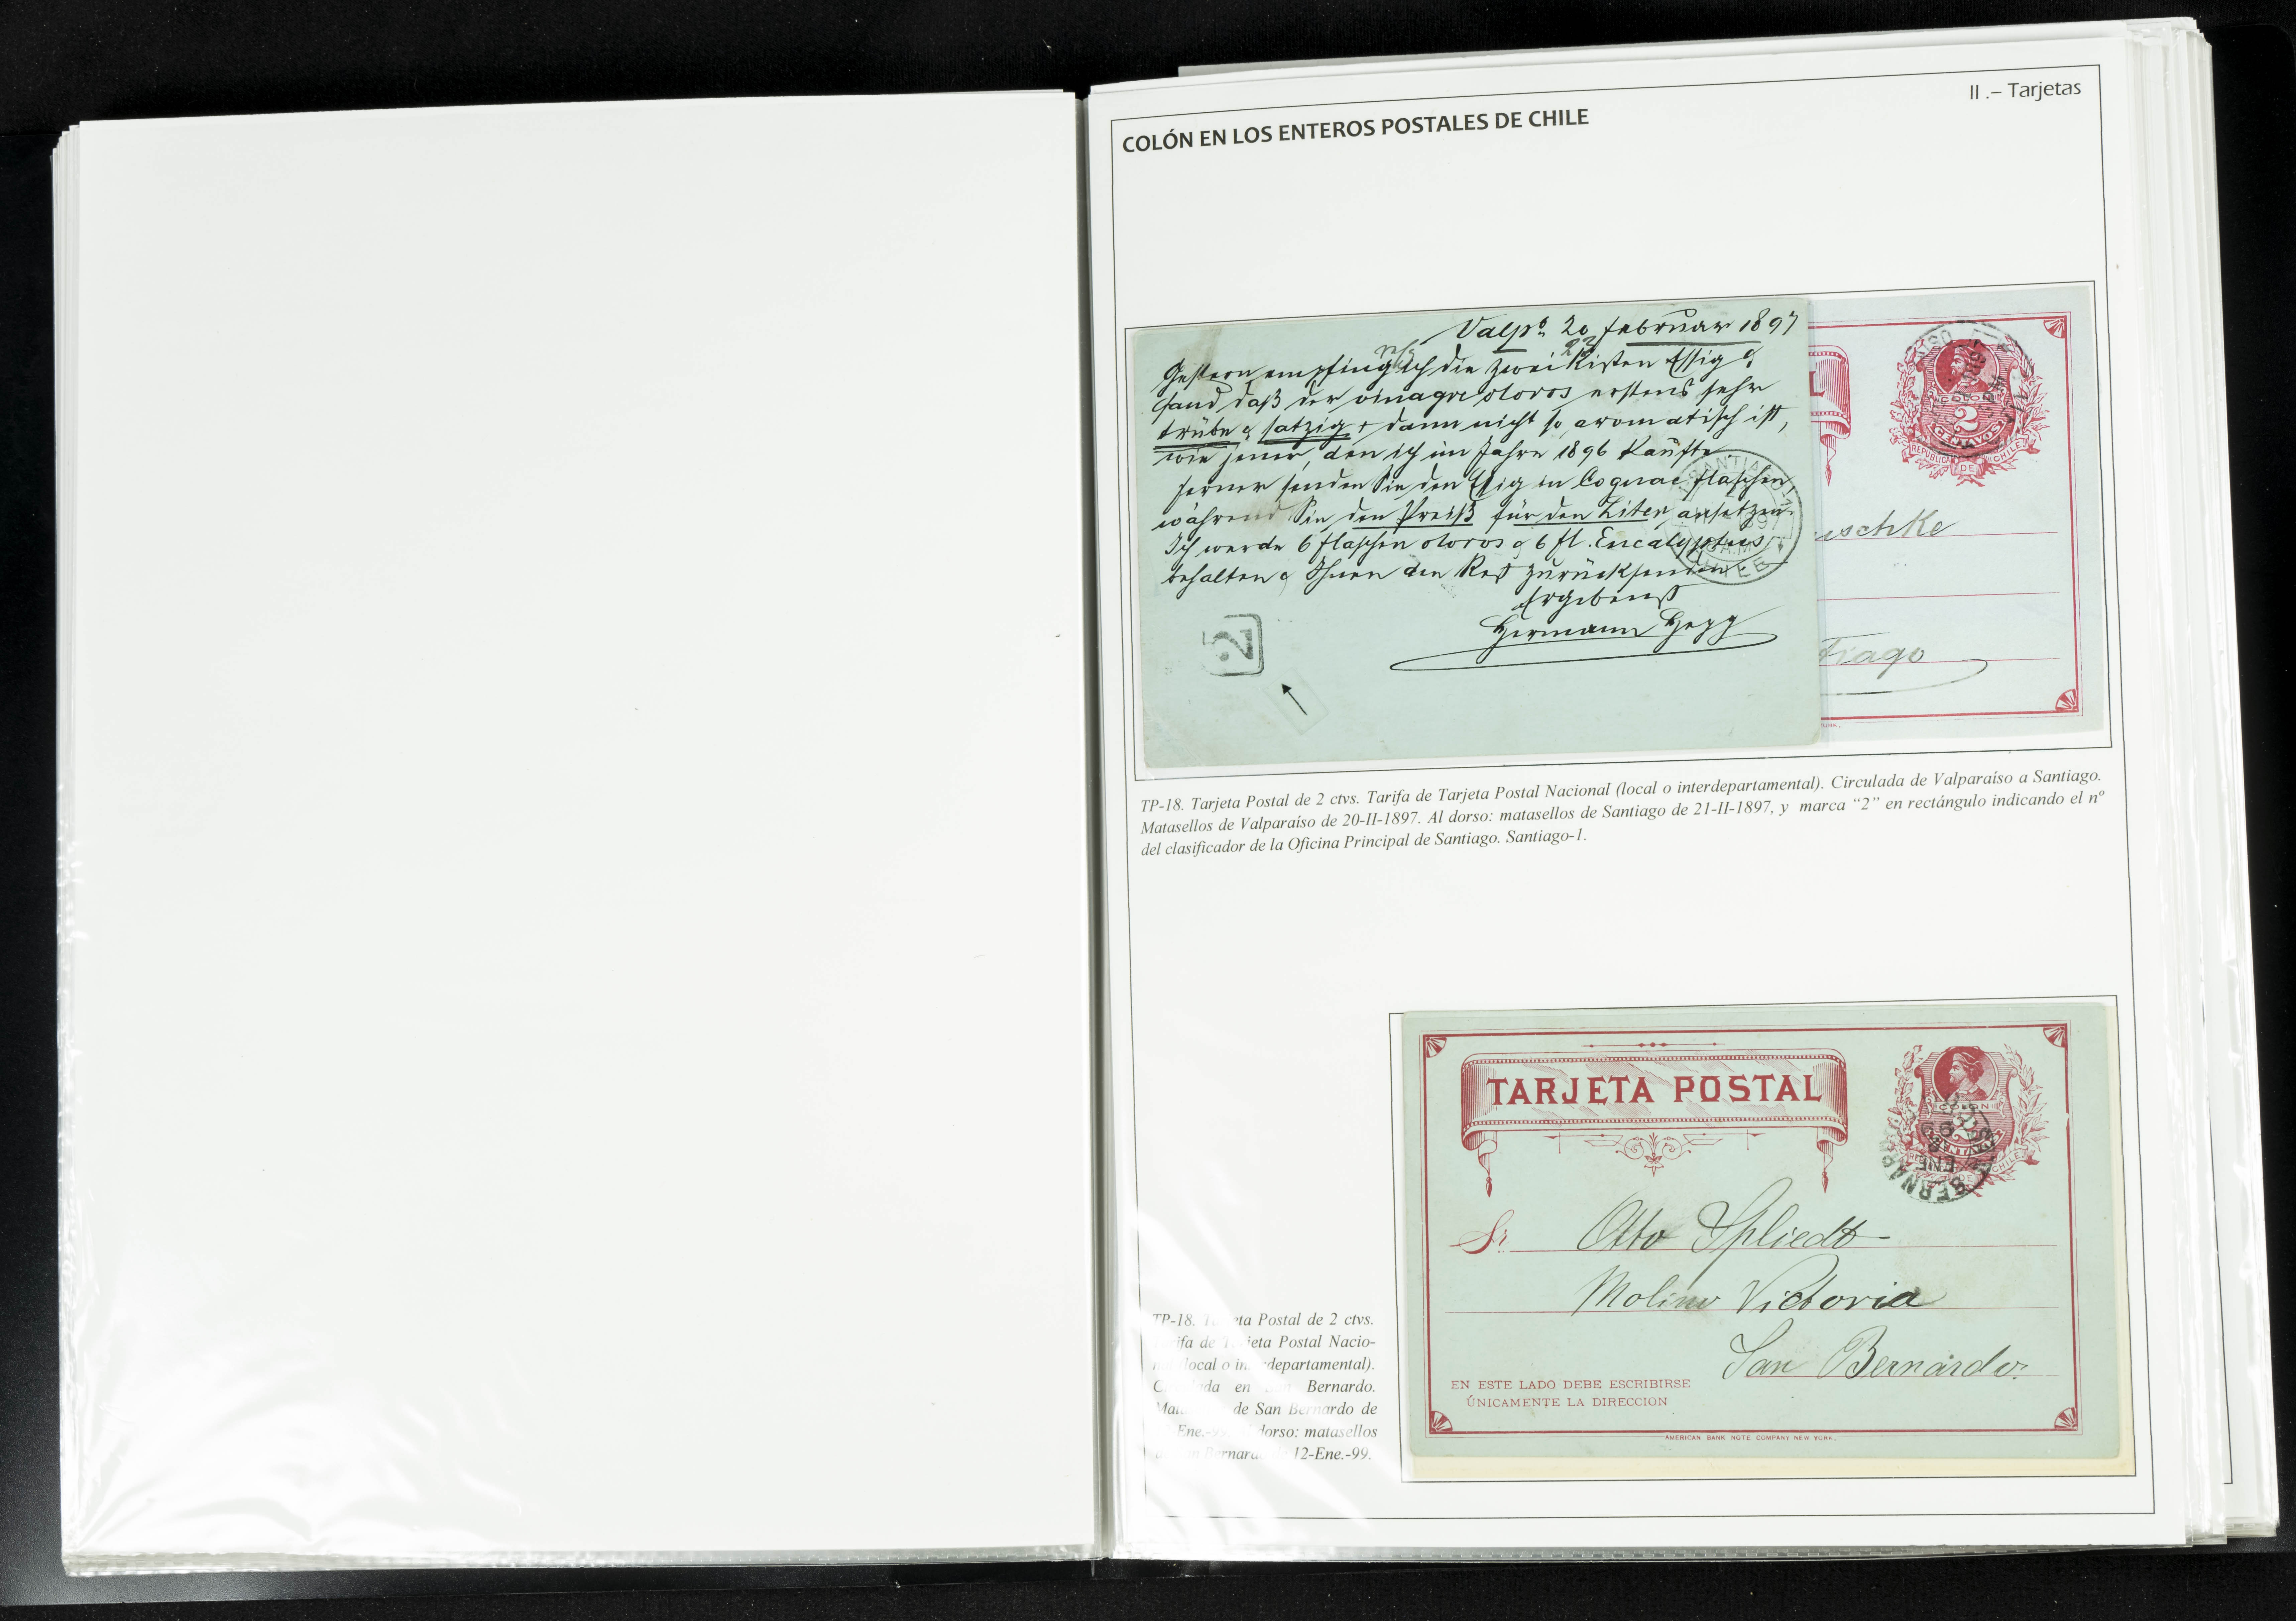 II .– Tarjetas
COLÓN EN LOS ENTEROS POSTALES DE CHILE
Valpº 20 Februar 1897
Gestern empfing ich die zwei Kisten Essig &
fand daß der vinagre oloros erstens sehr
trübe & satzig + dann nicht so aromatisch ist,
wie jener, den ich im Jahre 1896 kaufte
ferner senden Sie den Essig in Cognac flaschen,
während Sie den Preiß für den Liter ansetzen.
Ich werde 6 flaschen oloros & 6 fl. Eucalyptus
behalten & Ihnen den Rest zurücksenden
Ergebenst
Hermann
SANTIAGO
CHILE
2
COLON
2
CENTAVOS
REPUBLICA DE CHILE
uschke
tiago
TP-18. Tarjeta Postal de 2 ctvs. Tarifa de Tarjeta Postal Nacional (local o interdepartamental). Circulada de Valparaíso a Santiago.
Matasellos de Valparaíso de 20-II-1897. Al dorso: matasellos de Santiago de 21-II-1897, y marca “2” en rectángulo indicando el nº
del clasificador de la Oficina Principal de Santiago. Santiago-1.
TARJETA POSTAL
COLON
CHILE
BERNARDO
ENE
99
Sr. Otto Spliedt
Molino Victoria
San Bernardo.
EN ESTE LADO DEBE ESCRIBIRSE
ÚNICAMENTE LA DIRECCION
AMERICAN BANK NOTE COMPANY NEW YORK.
TP-18. eta Postal de 2 ctvs.
de jeta Postal Nacio-
local o in rdepartamental).
en Bernardo.
de San Bernardo de
Ene.- dorso: matasellos
12-Ene.-99.